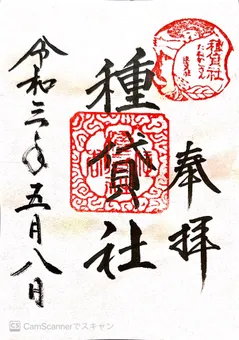 奉拝
種貸社
種貸社
令和三年五月八日
CS CamScannerでスキャン